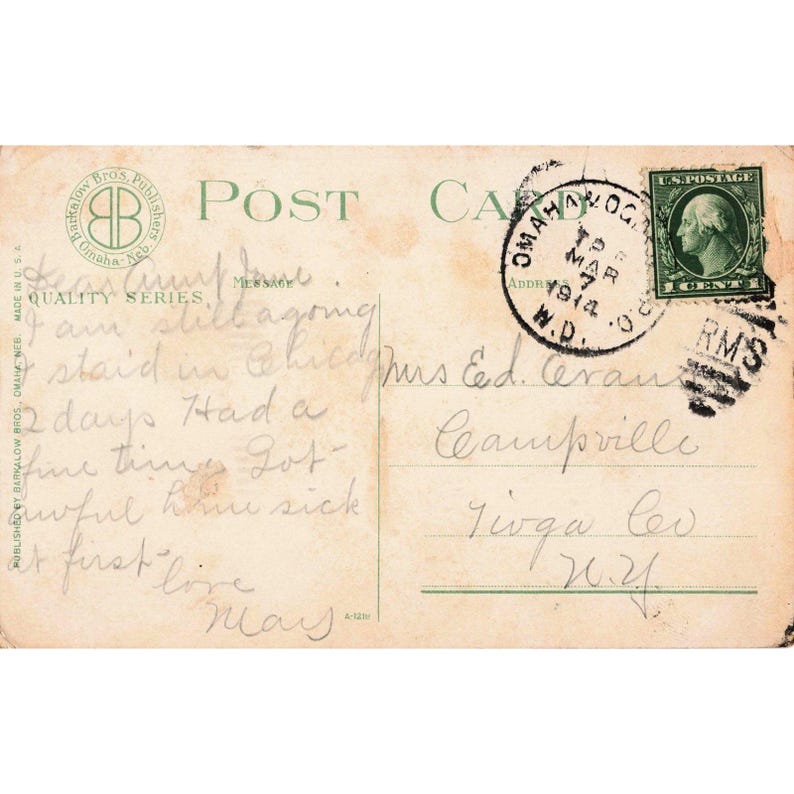 Barkalow Bro's. Publishers
Omaha - Neb.
POST CARD
U.S. POSTAGE
1 CENT 1
OMAHA
TR
MAR
7
1914
W.D.
R.P.O.
RMS
MESSAGE
ADDRESS
QUALITY SERIES.
PUBLISHED BY BARKALOW BROS., OMAHA, NEB. MADE IN U.S.A
Dear Aunt Jane
I am still agoing
I staid in Chicag
2 days Had a
fine time Got
awful home sick
at first-
love
A-1219
Mrs Ed. Evans
Campville
Tioga Co
N.Y.